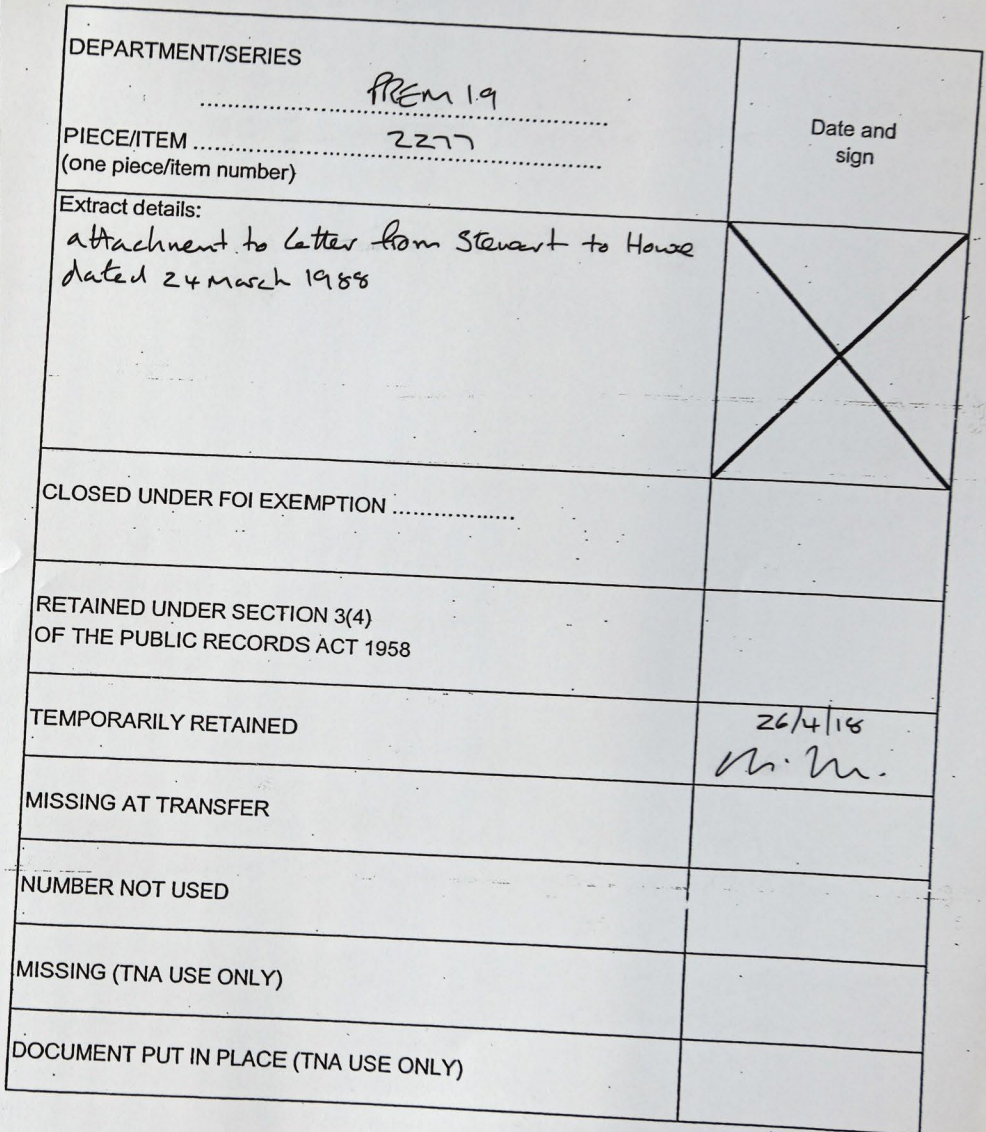 DEPARTMENT/SERIES
PREM 19
Date and
sign
PIECE/ITEM 2277
(one piece/item number)
Extract details:
attachment to letter from Stewart to Howe
dated 24 March 1988
CLOSED UNDER FOI EXEMPTION ..................
RETAINED UNDER SECTION 3(4)
OF THE PUBLIC RECORDS ACT 1958
TEMPORARILY RETAINED
26/4/18
MISSING AT TRANSFER
NUMBER NOT USED
MISSING (TNA USE ONLY)
DOCUMENT PUT IN PLACE (TNA USE ONLY)